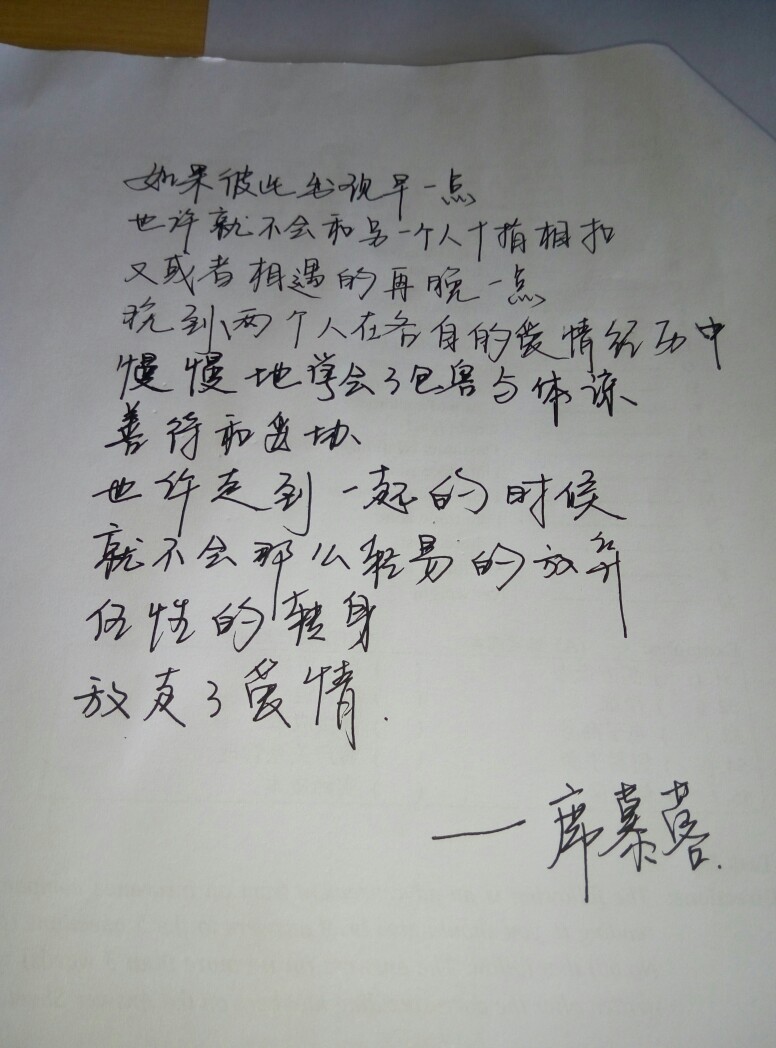 如果彼此出现早一点
也许就不会和另一个人十指相扣
又或者相遇的再晚一点
晚到两个人在各自的爱情经历中
慢慢地学会了包容与体谅
善待和妥协
也许走到一起的时候
就不会那么轻易的放弃
任性的转身
放走了爱情.
—席慕蓉.